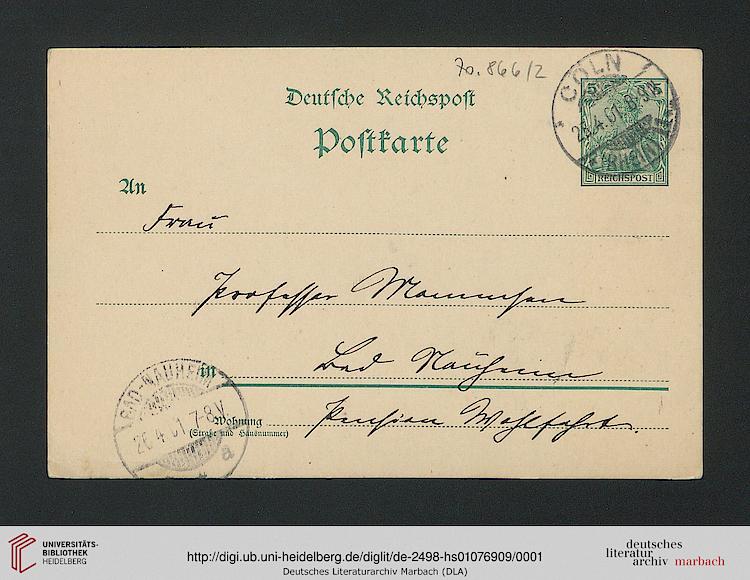 70.866/2
Deutsche Reichspost
Postkarte
CÖLN
4.01. 8-9
5
REICHSPOST
An
Frau
Professor Mommsen
in Bad Nauheim
BAD-NAUHEIM
26.4.01. 7-8V
a
Wohnung
(Straße und Hausnummer)
Pension Wohlfahrt.
UNIVERSITÄTS-
BIBLIOTHEK
HEIDELBERG
http://digi.ub.uni-heidelberg.de/diglit/de-2498-hs01076909/0001
Deutsches Literaturarchiv Marbach (DLA)
deutsches
literatur
archiv marbach